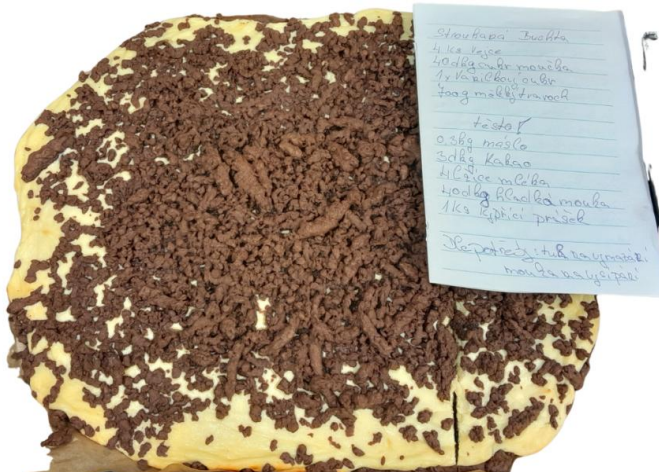 Strouhaná Buchta
4 Ks vejce
40dkg cukr moučka
1x Vanilkový cukr
700g měkký tvaroch
těsto!
0.5kg máslo
3dkg Kakao
4 lžíce mléka
40dkg hladká mouka
1 Ks kypřící prášek
Dle potřeby: tuk na vymazání
mouka na vysypání